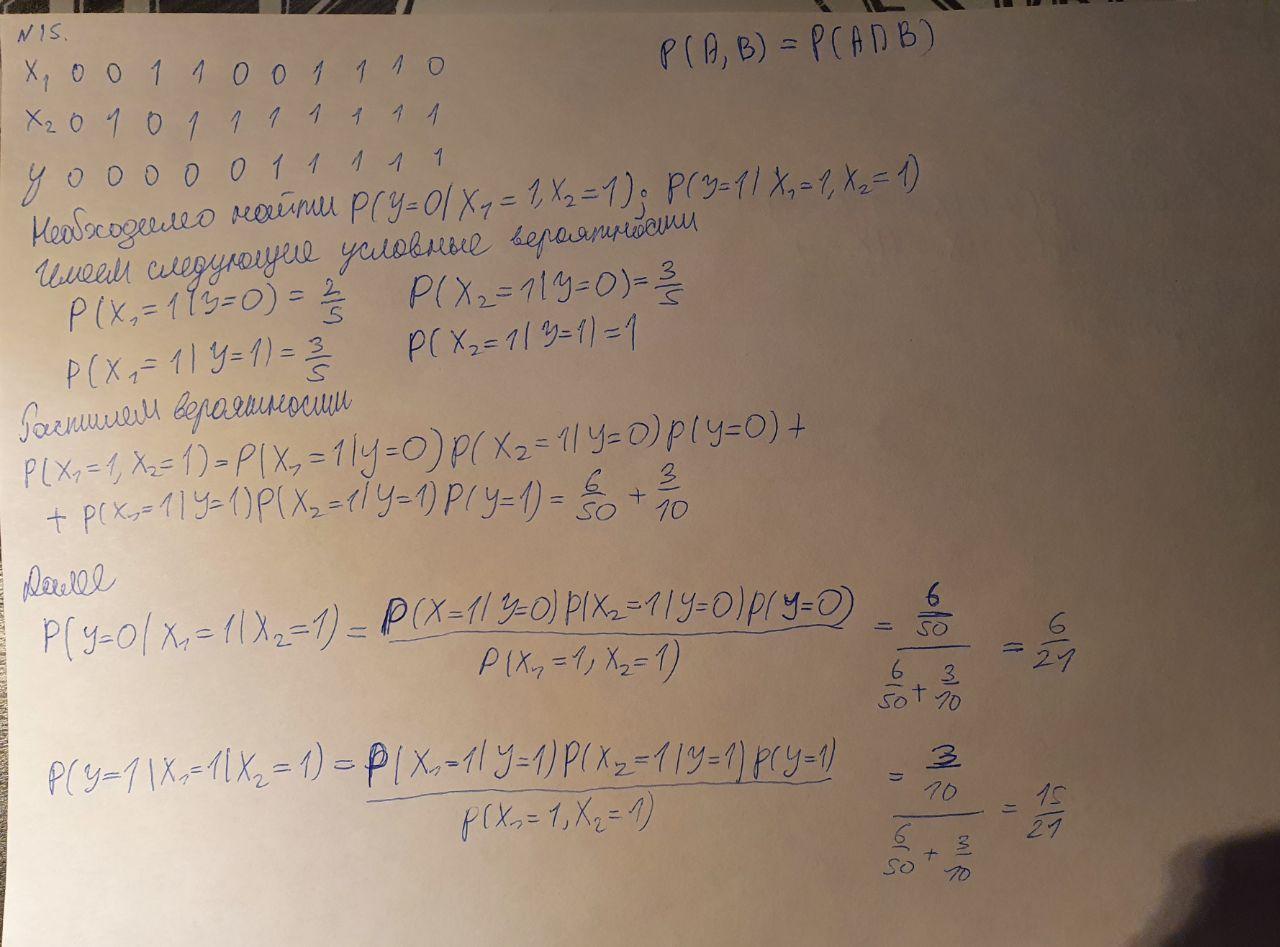 N15.
X₁ 0 0 1 1 0 0 1 1 1 0
P(A,B) = P(A∩B)
X₂ 0 1 0 1 1 1 1 1 1 1
y 0 0 0 0 0 1 1 1 1 1
Необходимо найти P(y=0|X₁=1,X₂=1); P(y=1|X₁=1,X₂=1)
Имеем следующие условные вероятности
P(X₁=1|y=0) = 2/5 P(X₂=1|y=0) = 3/5
P(X₁=1|y=1) = 3/5 P(X₂=1|y=1) = 1
Распишем вероятности
P(X₁=1,X₂=1) = P(X₁=1|y=0)P(X₂=1|y=0)P(y=0) +
+ P(X₁=1|y=1)P(X₂=1|y=1)P(y=1) = 6/50 + 3/10
Далее
P(y=0|X₁=1|X₂=1) = P(X=1|y=0)P(X₂=1|y=0)P(y=0) / P(X₁=1,X₂=1) = 6/50 / 6/50 + 3/10 = 6/21
P(y=1|X₁=1|X₂=1) = P(X₁=1|y=1)P(X₂=1|y=1)P(y=1) / P(X₁=1,X₂=1) = 3/10 / 6/50 + 3/10 = 15/21